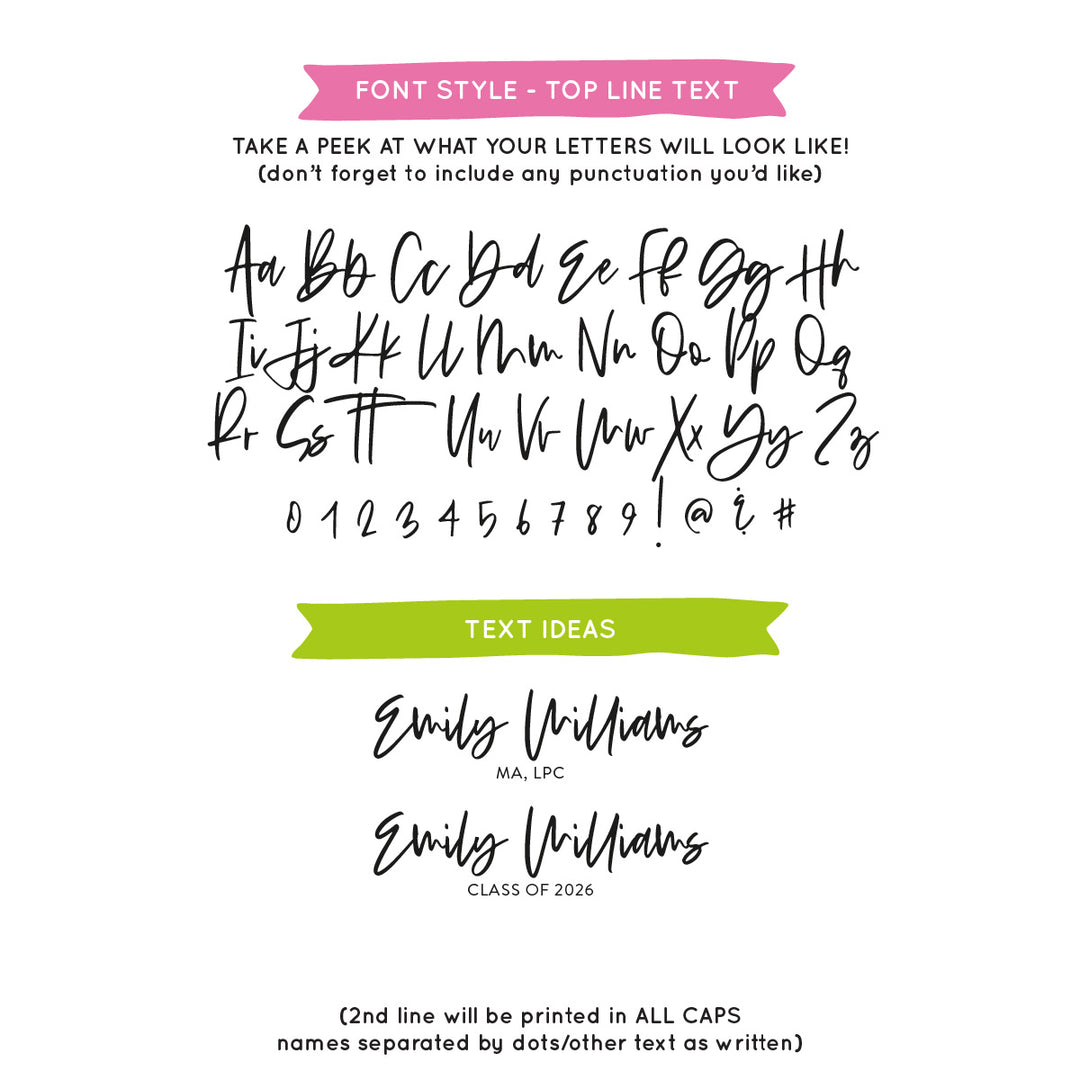 FONT STYLE - TOP LINE TEXT
TAKE A PEEK AT WHAT YOUR LETTERS WILL LOOK LIKE!
(don't forget to include any punctuation you'd like)
Aa Bb Cc Dd Ee Ff Gg Hh
Ii Jj Kk Ll Mm Nn Oo Pp Qq
Rr Ss Tt Uu Vv Ww Xx Yy Zz
0 1 2 3 4 5 6 7 8 9 ! @ & #
TEXT IDEAS
Emily Williams
MA, LPC
Emily Williams
CLASS OF 2026
(2nd line will be printed in ALL CAPS
names separated by dots/other text as written)